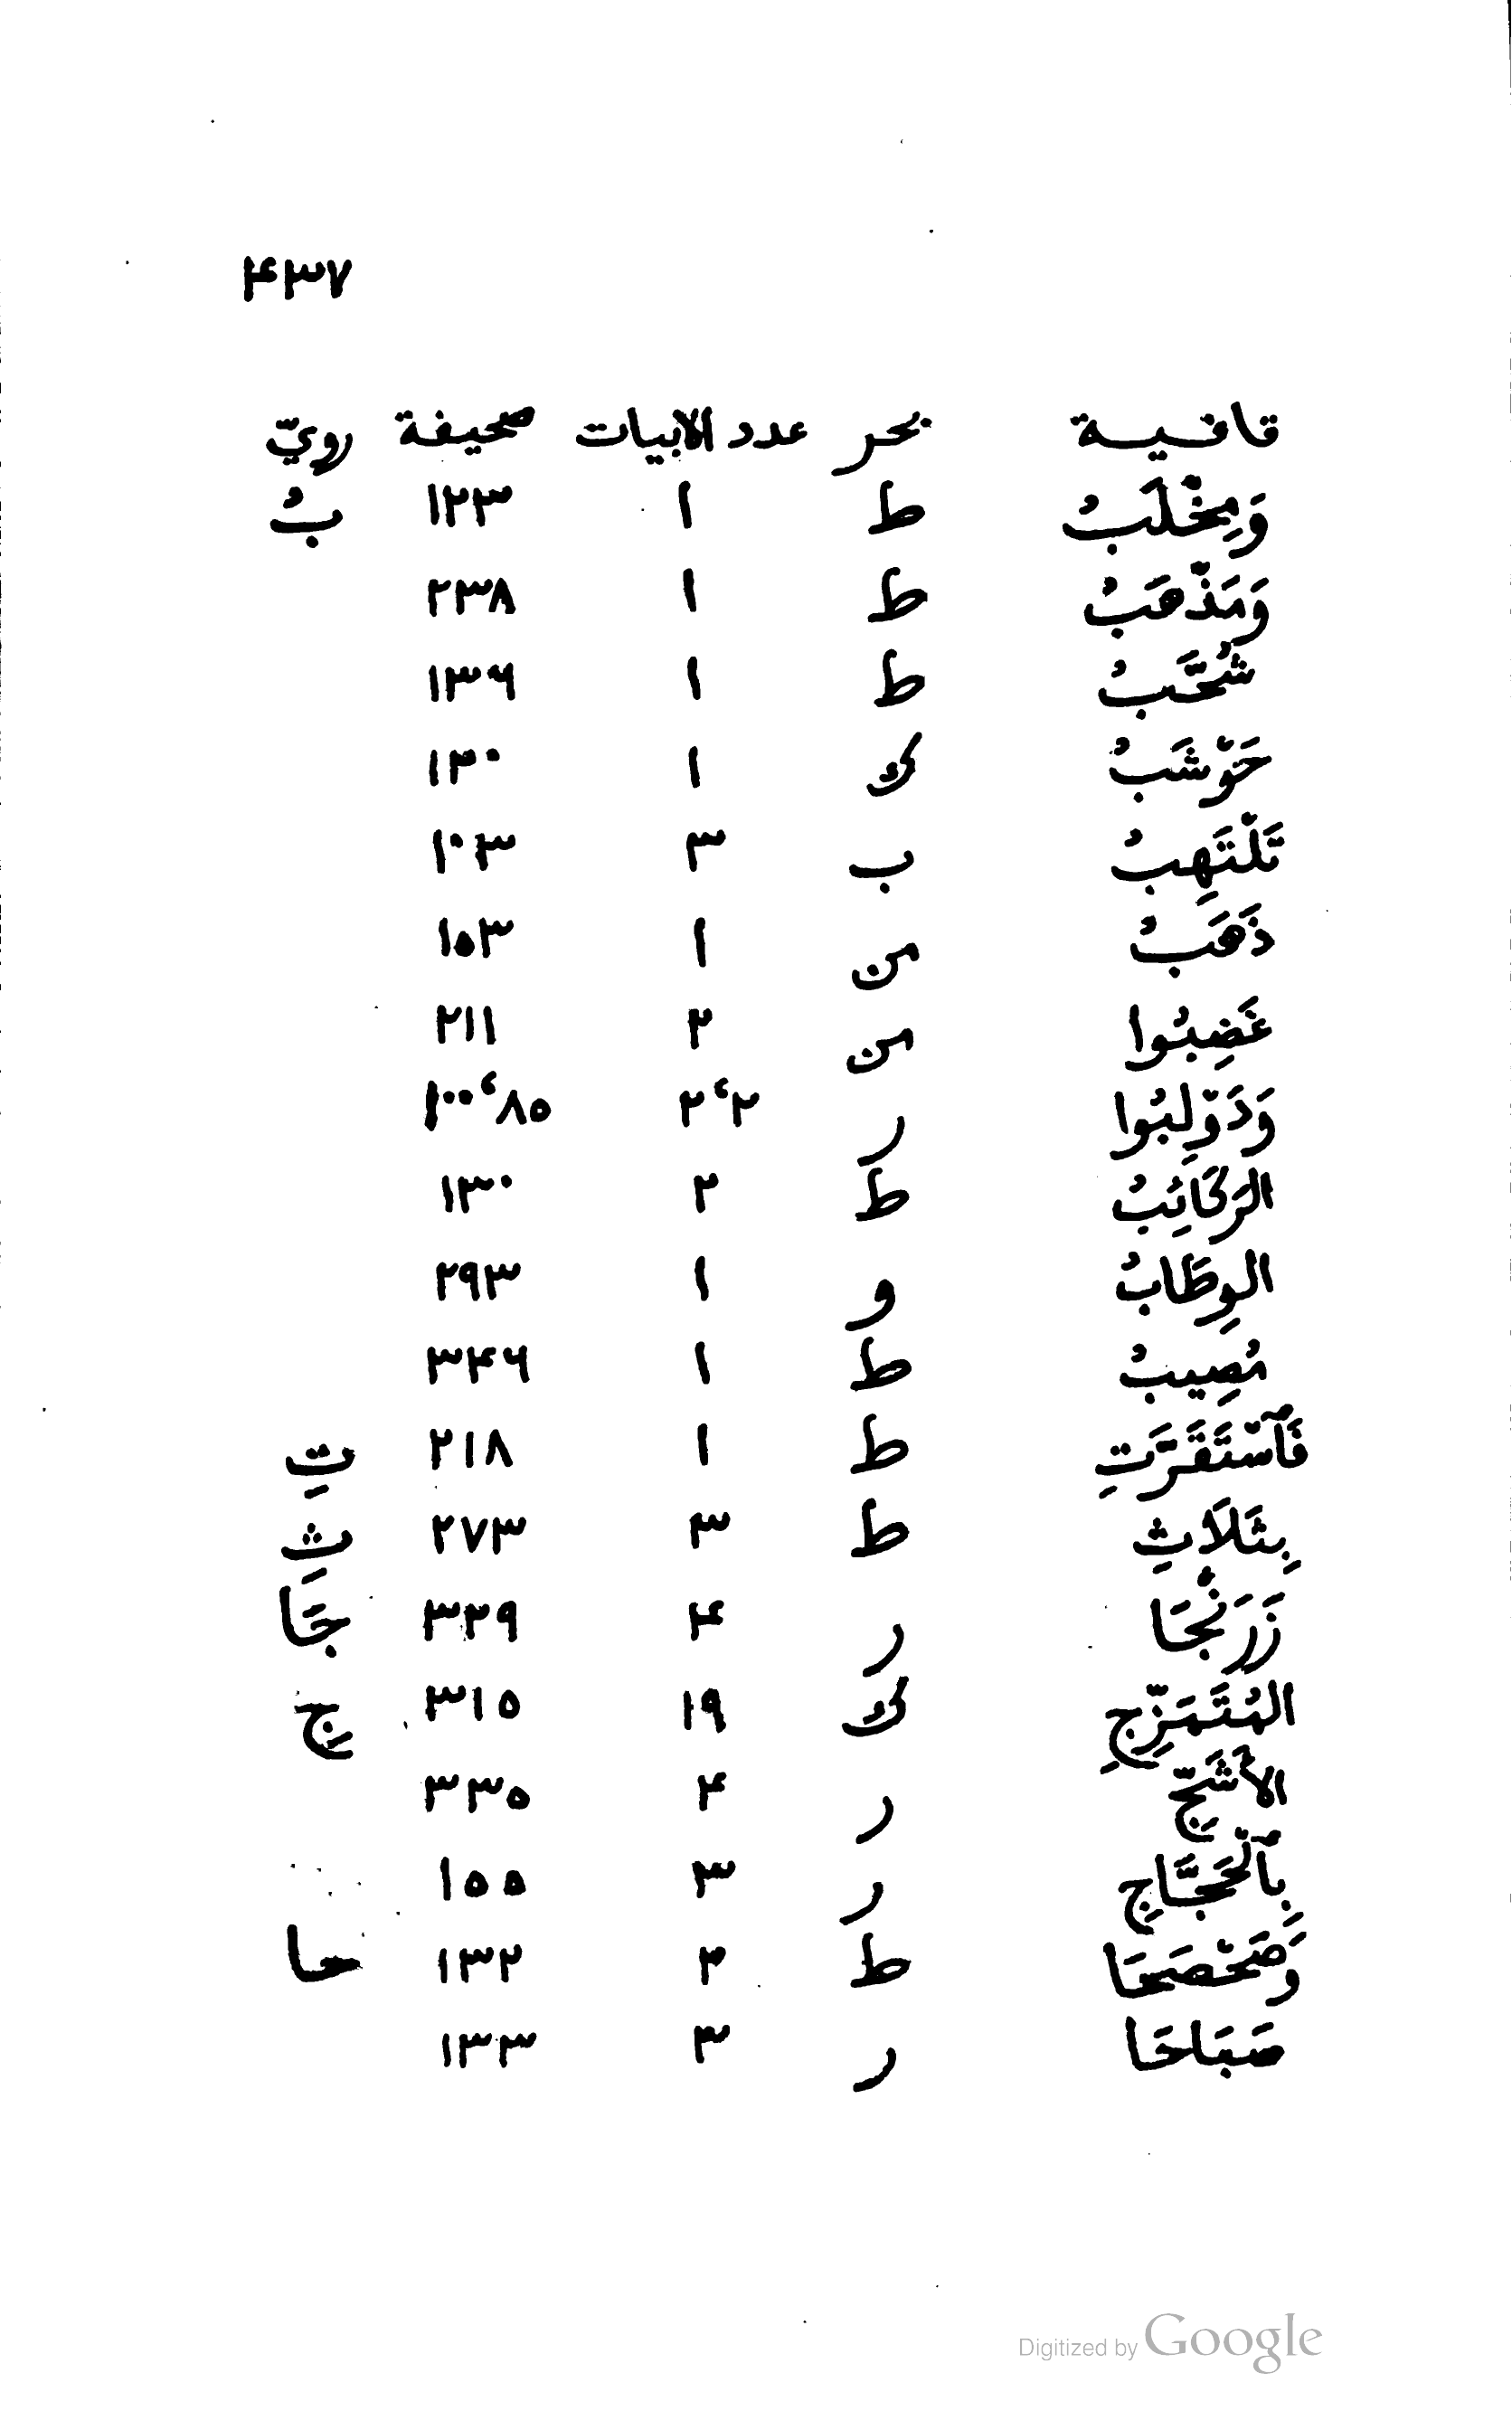 ٤٣٧
قافية بحر عدد الابيات صحيفة رويّ
وَمِخْلَبُ ط ١ ١٢٣ بُ
وَمَذْهَبُ ط ١ ٢٣٨
شُحَّبُ ط ١ ١٣٦
حَوْشَبُ ك ١ ١٣٠
تَلْتَهِبُ ب ٣ ١٠٣
ذَهَبُ من ١ ١٥٣
غَضِبُوا من ٢ ٢١١
وَدَوْلِبُوا ر ٢،٢ ٨٥،١٠٠
الرَكَائِبُ ط ٢ ١٣٠
الوِطَابُ و ١ ٢٩٣
مُصِيبُ ط ١ ٣٤٦
فَٱسْتَقَرَّتِ ط ١ ٢١٨ تِ
بِثَلَاثِ ط ٣ ٢٧٣ ثِ
زَرَنْجَا ر ٤ ٣٣٩ جَا
المُتَمَزِّجِ ك ١٩ ٣١٥ جِ
الأَشَجِّ ر ٤ ٣٣٥
بِٱلْحَجَّاجِ ر ٣ ١٥٥
وَصَحْصَحَا ط ٢ ١٣٢ حا
صَبَاحَا ر ٣ ١٣٣
Digitized by Google